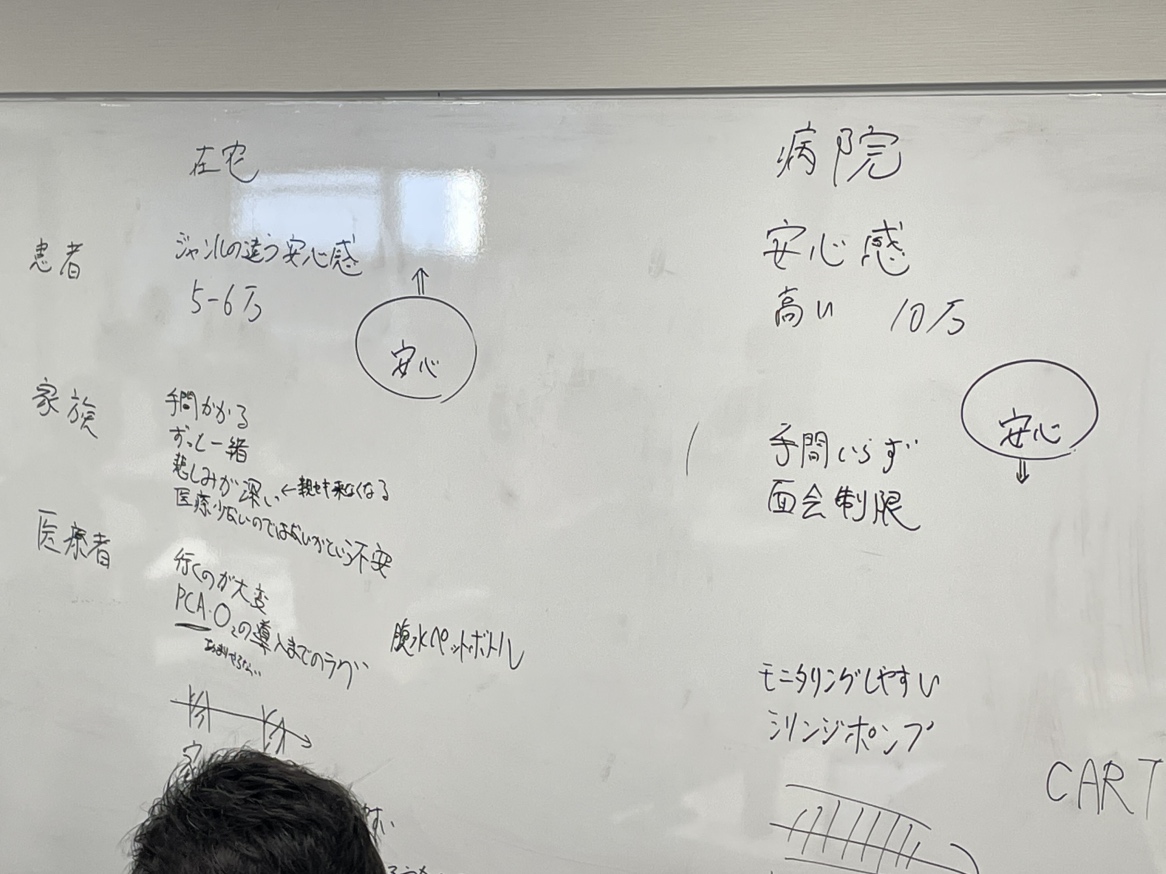 在宅
病院
患者
ジャンルの違う安心感
5-6万
安心
安心感
高い 10万
安心
家族
手間かかる
ずっと一緒
悲しみが深い ← 親せき来なくなる
医療少ないのではないかという不安
手間いらず
面会制限
医療者
行くのが大変
PCA・O₂の導入までのラグ
あまりやらない
腹水ペットボトル
モニタリングしやすい
シリンジポンプ
CART